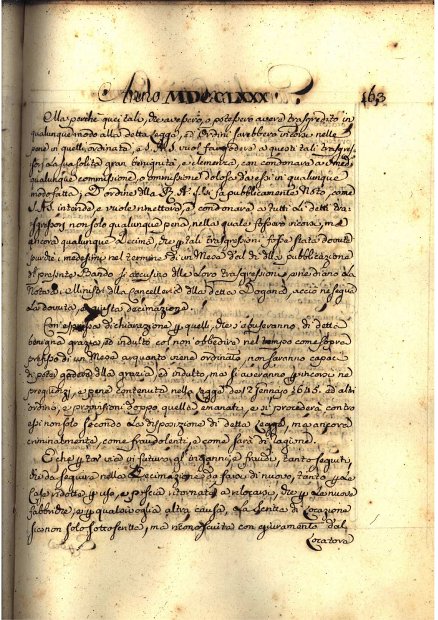 Anno MDCCLXXX. 163
Ma perche quei tali, che avessero, o potessero avere trasgredito in
qualunque modo alla detta Legga, ed Ordini sarebbero incorsi nelle
pene in quelli ordinate, e S. A. S. vuol far godere a questi tali trasgres-
sori la sua solita gran benignità, e clemenza, con condonare a i med.i
qualunque commissione, o ommissione dolosa da essi in qualunque
modo fatta; D'ordine della R. A. Sua fa pubblicamente Noto, come
S. A. S. intende, e vuole rimettere, e condonare a tutti li detti tra-
sgressori non solo qualunque pena, nella quale fossero incorsi, ma
ancora qualunque Decima, che per tali trasgressioni fosse stata dovuta
purche i medesimi nel termine di un Mese dal dì della pubblicazione
del presente Bando si accusino delle loro trasgressioni, e ne diano la
Nota a' Ministri della Cancelleria della detta Dogana, acciò ne segua
la dovuta, e giusta decimazione.
Con espressa dichiarazione che quelli, che abuseranno di detta
benigna grazia, ed indulto col non obbedire nel tempo come sopra
prefisso di un Mese a quanto viene ordinato, non saranno capaci
di poter godere della grazia, ed indulto, ma si averanno per incorsi ne
pregiudizj, e pene contenute nella Legge del 12 Gennajo 1685. ed altri
ordini, e provvisioni doppo quella emanate, e si procederà contro
essi non solo secondo la disposizione di detta Legga, ma ancora
criminalmente come fraudolenti, e come sarà di ragione.
E che per tor via in futuro gl'inganni, e fraudi, tanto seguiti,
che da seguire nella Decimazione da farsi di nuovo, tanto per le
Case ridotte per uso, e poscia ritornate a rilocarsi, che per le nuove
fabbriche, e per qualsivoglia altra causa, la Scritta di Locazione
sia non solo sottoscritta, ma riconosciuta con giuramento dal
Locatore